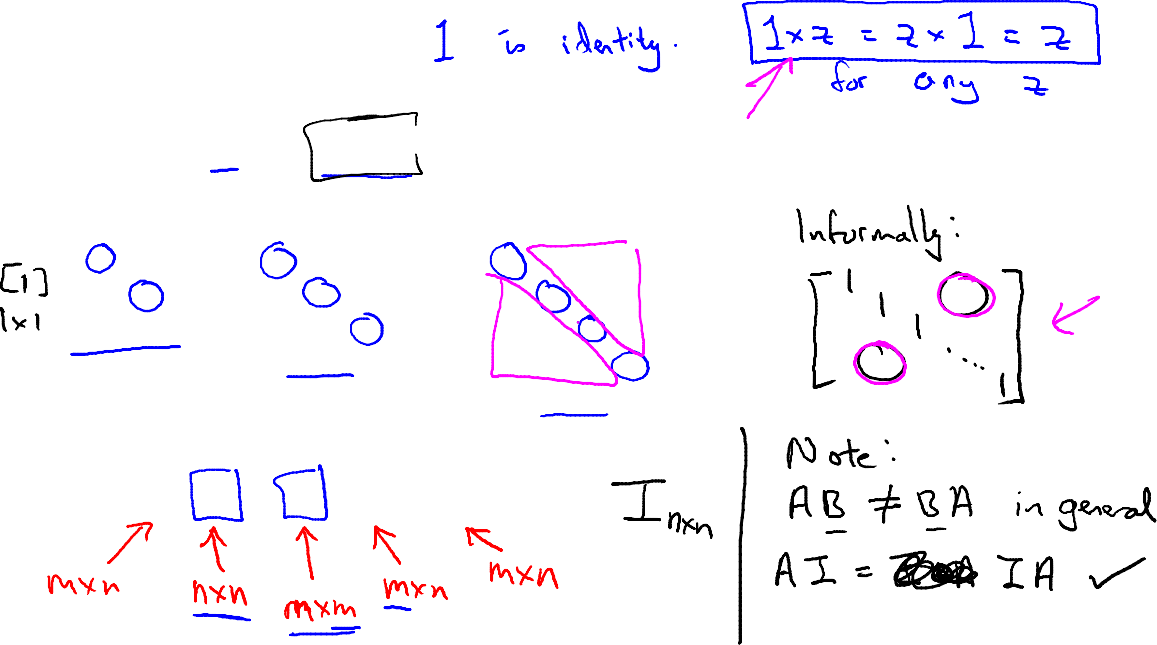 1 is identity.
1×z = z×1 = z
for any z
Informally:
[1]
1×1
1
1
1
....
1
I n×n
m×n
n×n
m×m
m×n
m×n
Note:
AB ≠ BA in general
AI = IA ✓